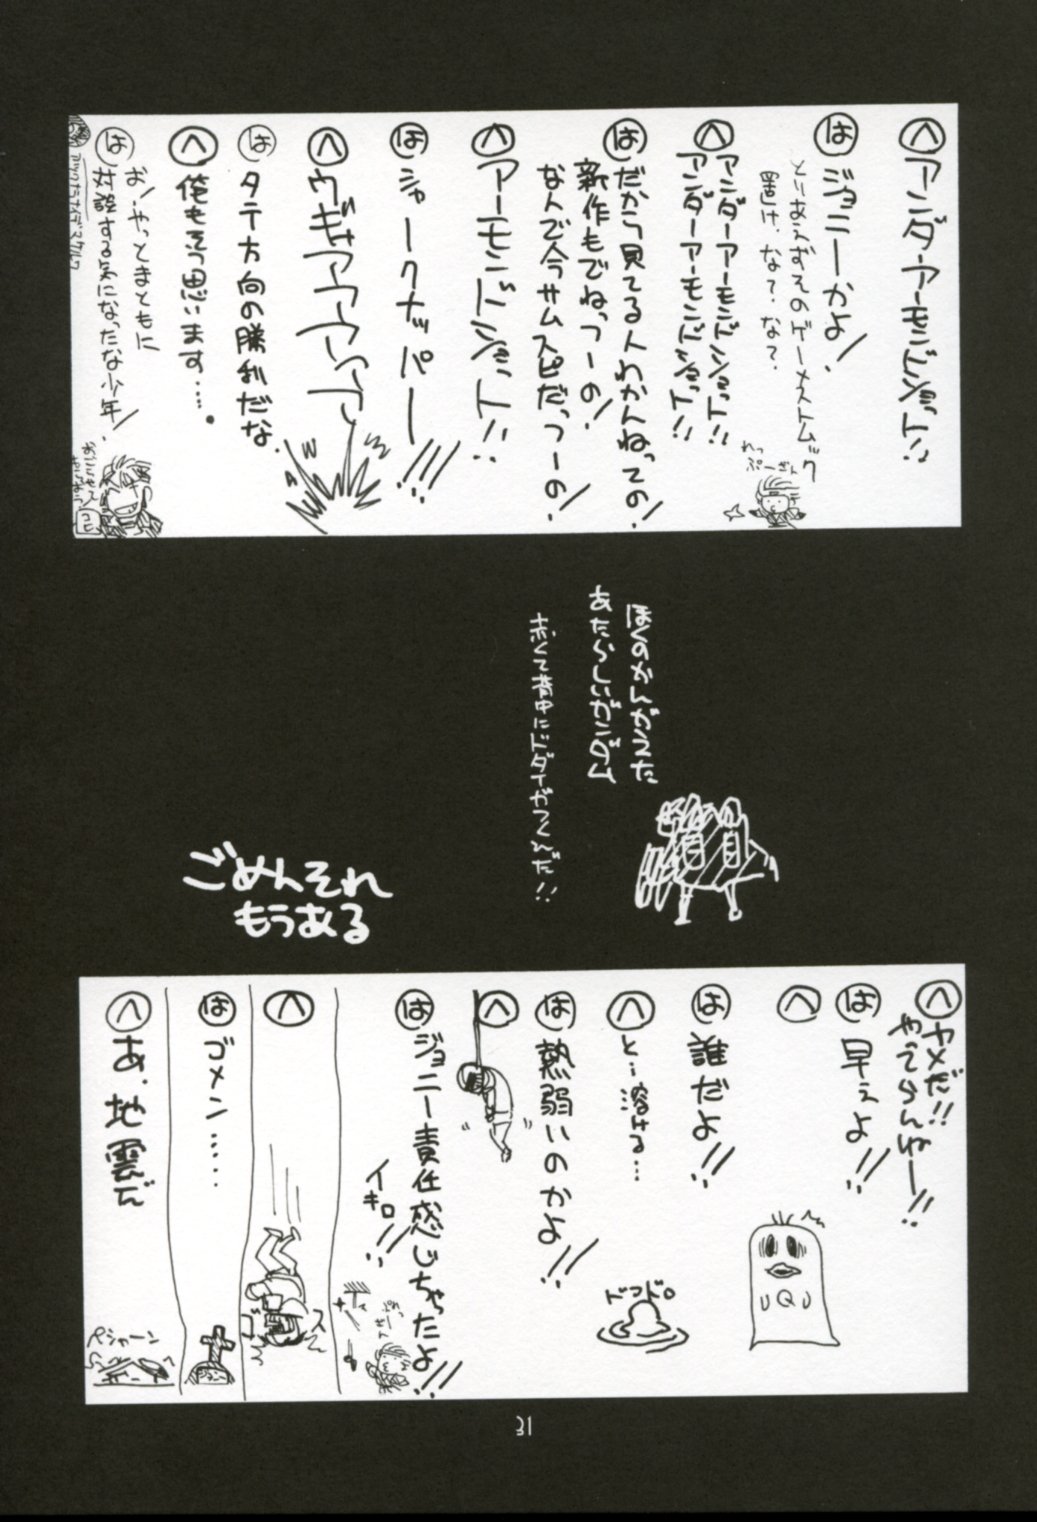 へ アンダーアーモンドショット!!
は ジョニーかよ!
とりあえずそのゲーメストムック
置け、な?な?
れっぷーけん
へ アンダーアーモンドショット!!
アンダーアーモンドショット!!
は だから見てる人わかんねっての!
新作もでねっつーの!
なんで今サムスピだっつーの!
へ アーモンドショット!!
は シャークナッパー!!!
へ ウギャアアアアア
は タテ方向の勝利だな
へ 俺もそう思います……。
は お、やっとまともに
対談する気になったな少年!
ぼくのかんがえた
あたらしいガンダム
赤くて背中にドダイがつくんだ!!
ごめんそれ
もうある
へ ヤメだ!!
やってらんねー!!
は 早えよ!!
へ
Q
は 誰だよ!!
へ と…溶ける…
ドロドロ
は 熱弱いのかよ!!
へ
は ジョニー責任感じちゃったよ!!!
イキロ!!
へ
は ゴメン……
へ あ、地震だ
ペシャーン
31